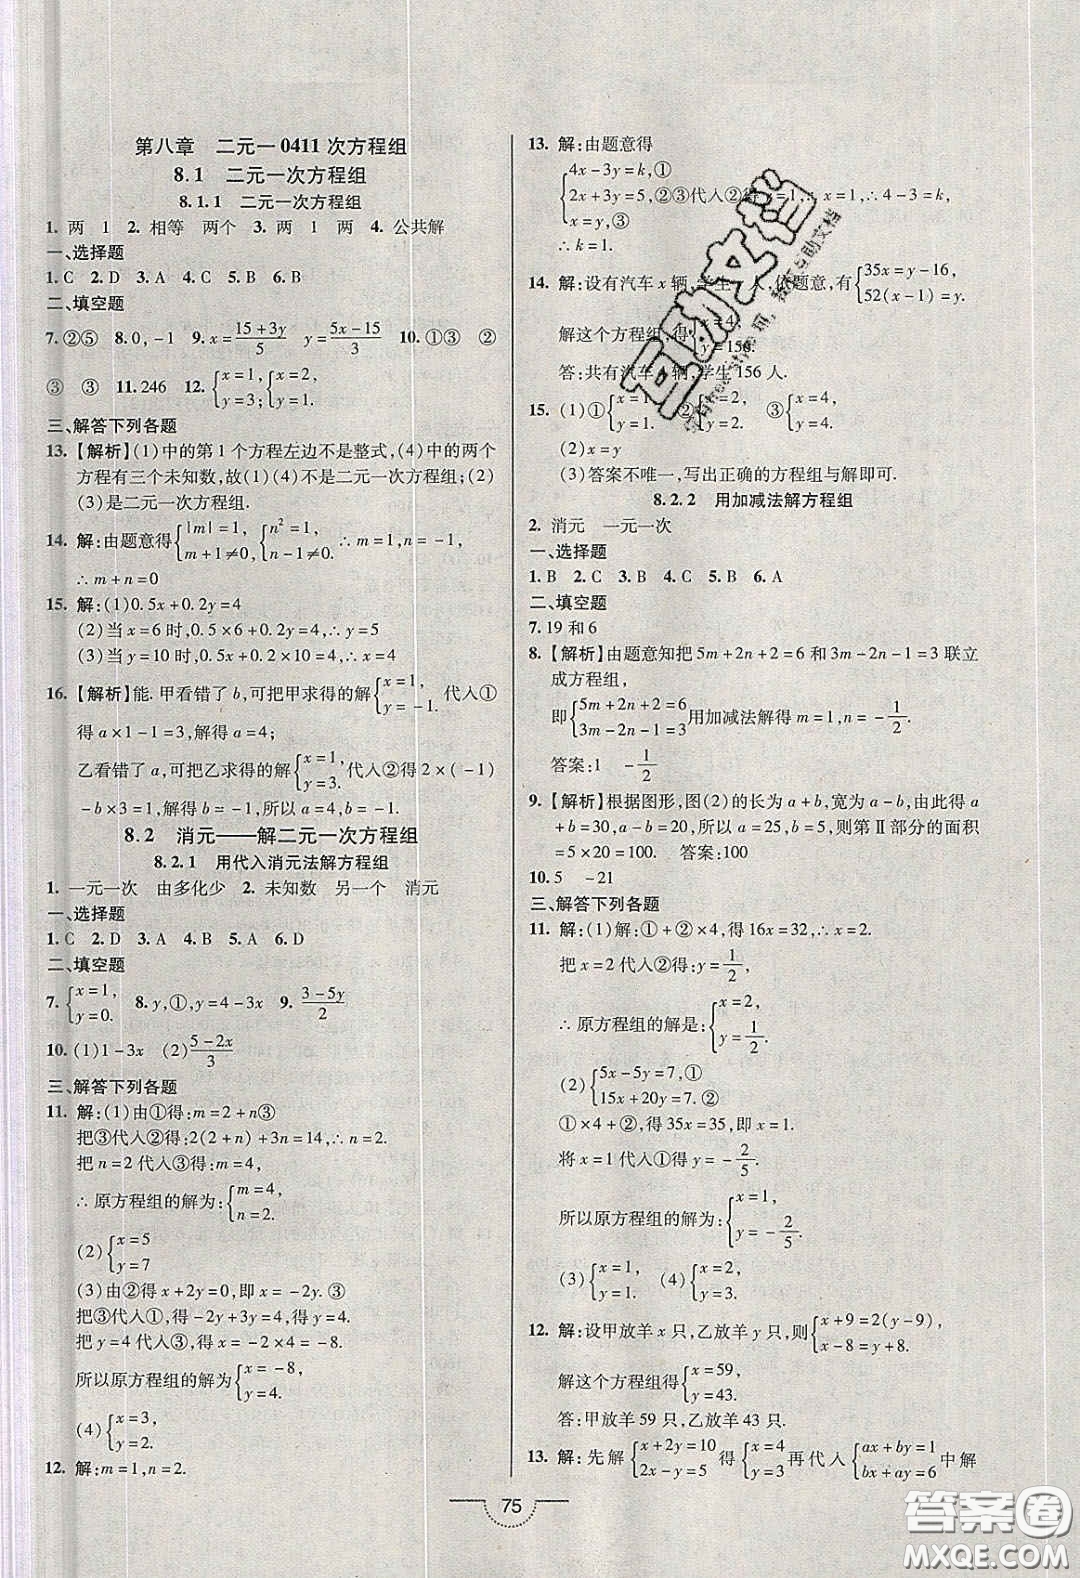 第八章 二元一0411次方程组
8.1 二元一次方程组
8.1.1 二元一次方程组
1. 两 1 2. 相等 两个 3. 两 1 两 4. 公共解
一、选择题
1. C 2. D 3. A 4. C 5. B 6. B
二、填空题
7. ②⑤ 8. 0, -1 9. x = (15+3y)/5 y = (5x-15)/3 10. ①③ ②
③ ③ 11. 246 12. {x=1, y=3; {x=2, y=1.
三、解答下列各题
13.【解析】(1)中的第1个方程左边不是整式,(4)中的两个
方程有三个未知数,故(1)(4)不是二元一次方程组;(2)
(3)是二元一次方程组.
14. 解:由题意得{|m|=1, m+1≠0, {n²=1, n-1≠0, ∴m=1,n=-1,
∴m+n=0
15. 解:(1)0.5x+0.2y=4
(2)当x=6时,0.5×6+0.2y=4,∴y=5
(3)当y=10时,0.5x+0.2×10=4,∴x=4
16.【解析】能. 甲看错了b,可把甲求得的解{x=1, y=-1. 代入①
得a×1-1=3,解得a=4;
乙看错了a,可把乙求得的解{x=1, y=3. 代入②得2×(-1)
-b×3=1,解得b=-1,所以a=4,b=-1.
8.2 消元——解二元一次方程组
8.2.1 用代入消元法解方程组
1. 一元一次 由多化少 2. 未知数 另一个 消元
一、选择题
1. C 2. D 3. A 4. A 5. A 6. D
二、填空题
7. {x=1, y=0. 8. y,①,y=4-3x 9. (3-5y)/2
10. (1)1-3x (2)(5-2x)/3
三、解答下列各题
11. 解:(1)由①得:m=2+n③
把③代入②得:2(2+n)+3n=14,∴n=2.
把n=2代入③得:m=4,
∴原方程组的解为:{m=4, n=2.
(2){x=5 y=7
(3)由②得x+2y=0,即x=-2y ③
把③代入①,得-2y+3y=4,得y=4.
把y=4代入③,得x=-2×4=-8,
所以原方程组的解为{x=-8, y=4.
(4){x=3, y=2.
12. 解:m=1,n=2.
13. 解:由题意得
{4x-3y=k,① 2x+3y=5,② x=y,③ ③代入②解得x=1,∴x=1,∴4-3=k,
∴k=1.
14. 解:设有汽车x辆,学生y人,依题意,有{35x=y-16, 52(x-1)=y.
解这个方程组,得{x=4, y=156.
答:共有汽车4辆,学生156人.
15. (1)①{x=1, y=1. ②{x=2, y=2. ③{x=1, y=1.
(2)x=y
(3)答案不唯一,写出正确的方程组与解即可.
8.2.2 用加减法解方程组
2. 消元 一元一次
一、选择题
1. B 2. C 3. C 4. B 5. B 6. A
二、填空题
7. 19和6
8.【解析】由题意知把5m+2n+2=6和3m-2n-1=3联立
成方程组,
即{5m+2n+2=6 3m-2n-1=3 用加减法解得m=1,n=-1/2.
答案:1 -1/2
9.【解析】根据图形,图(2)的长为a+b,宽为a-b,由此得a
+b=30,a-b=20,所以a=25,b=5,则第Ⅱ部分的面积
=5×20=100. 答案:100
10. 5 -21
三、解答下列各题
11. 解:(1)解:①+②×4,得16x=32,∴x=2.
把x=2代入②得:y=1/2,
∴原方程组的解是:{x=2, y=1/2.
(2){5x-5y=7,① 15x+20y=7.②
①×4+②得:35x=35,即x=1.
将x=1代入①得y=-2/5.
所以原方程组的解为:{x=1, y=-2/5.
(3){x=1, y=1. (4){x=2, y=1.
12. 解:设甲放羊x只,乙放羊y只,则{x+9=2(y-9), x-8=y+8.
解这个方程组得{x=59, y=43.
答:甲放羊59只,乙放羊43只.
13. 解:先解{x+2y=10 2x-y=5 得{x=4 y=3 再代入{ax+by=1 bx+ay=6 中解
75
互助文档
答案圈
MXQE.COM